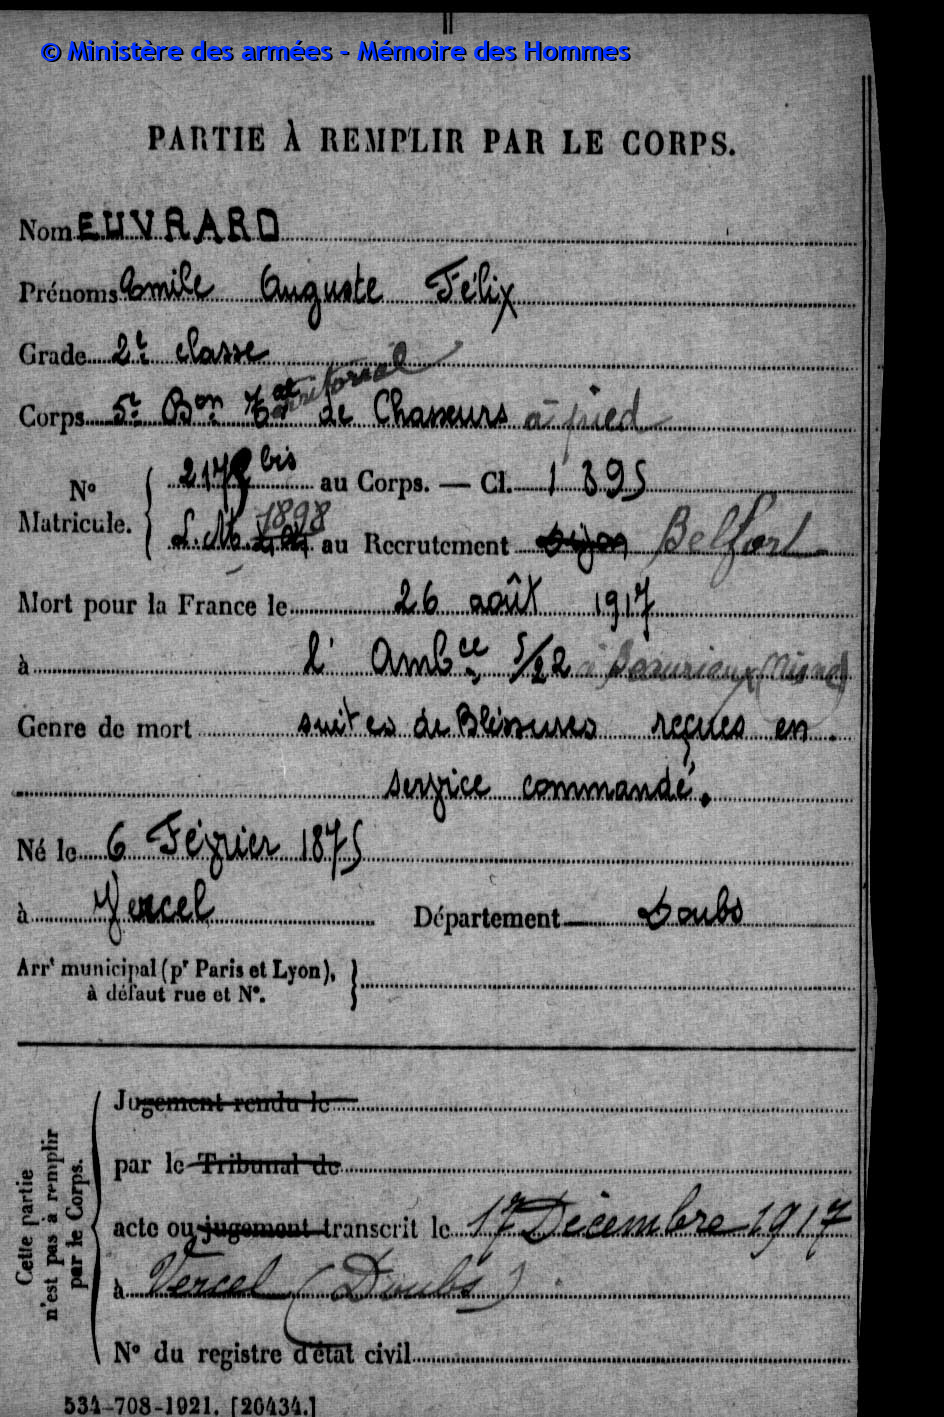 © Ministère des armées - Mémoire des Hommes
PARTIE À REMPLIR PAR LE CORPS.
Nom EUVRARD
Prénoms Emile Auguste Félix
Grade 2e classe
Corps 5e Bon Tal territorial de Chasseurs à pied
N° Matricule. { 217 bis au Corps. — Cl. 1895
L.M. 1898 au Recrutement Dijon Belfort
Mort pour la France le 26 août 1917
à l'Ambce 5/22 à Beaurieux (Aisne)
Genre de mort suites de Blessures reçues en
service commandé.
Né le 6 Février 1875
à Vercel Département Doubs
Arrt municipal (pr Paris et Lyon),
à défaut rue et N°.
Cette partie n'est pas à remplir par le Corps.
Jugement rendu le
par le Tribunal de
acte ou jugement transcrit le 17 Décembre 1917
à Vercel (Doubs)
N° du registre d'état civil
534-708-1921. [26434.]